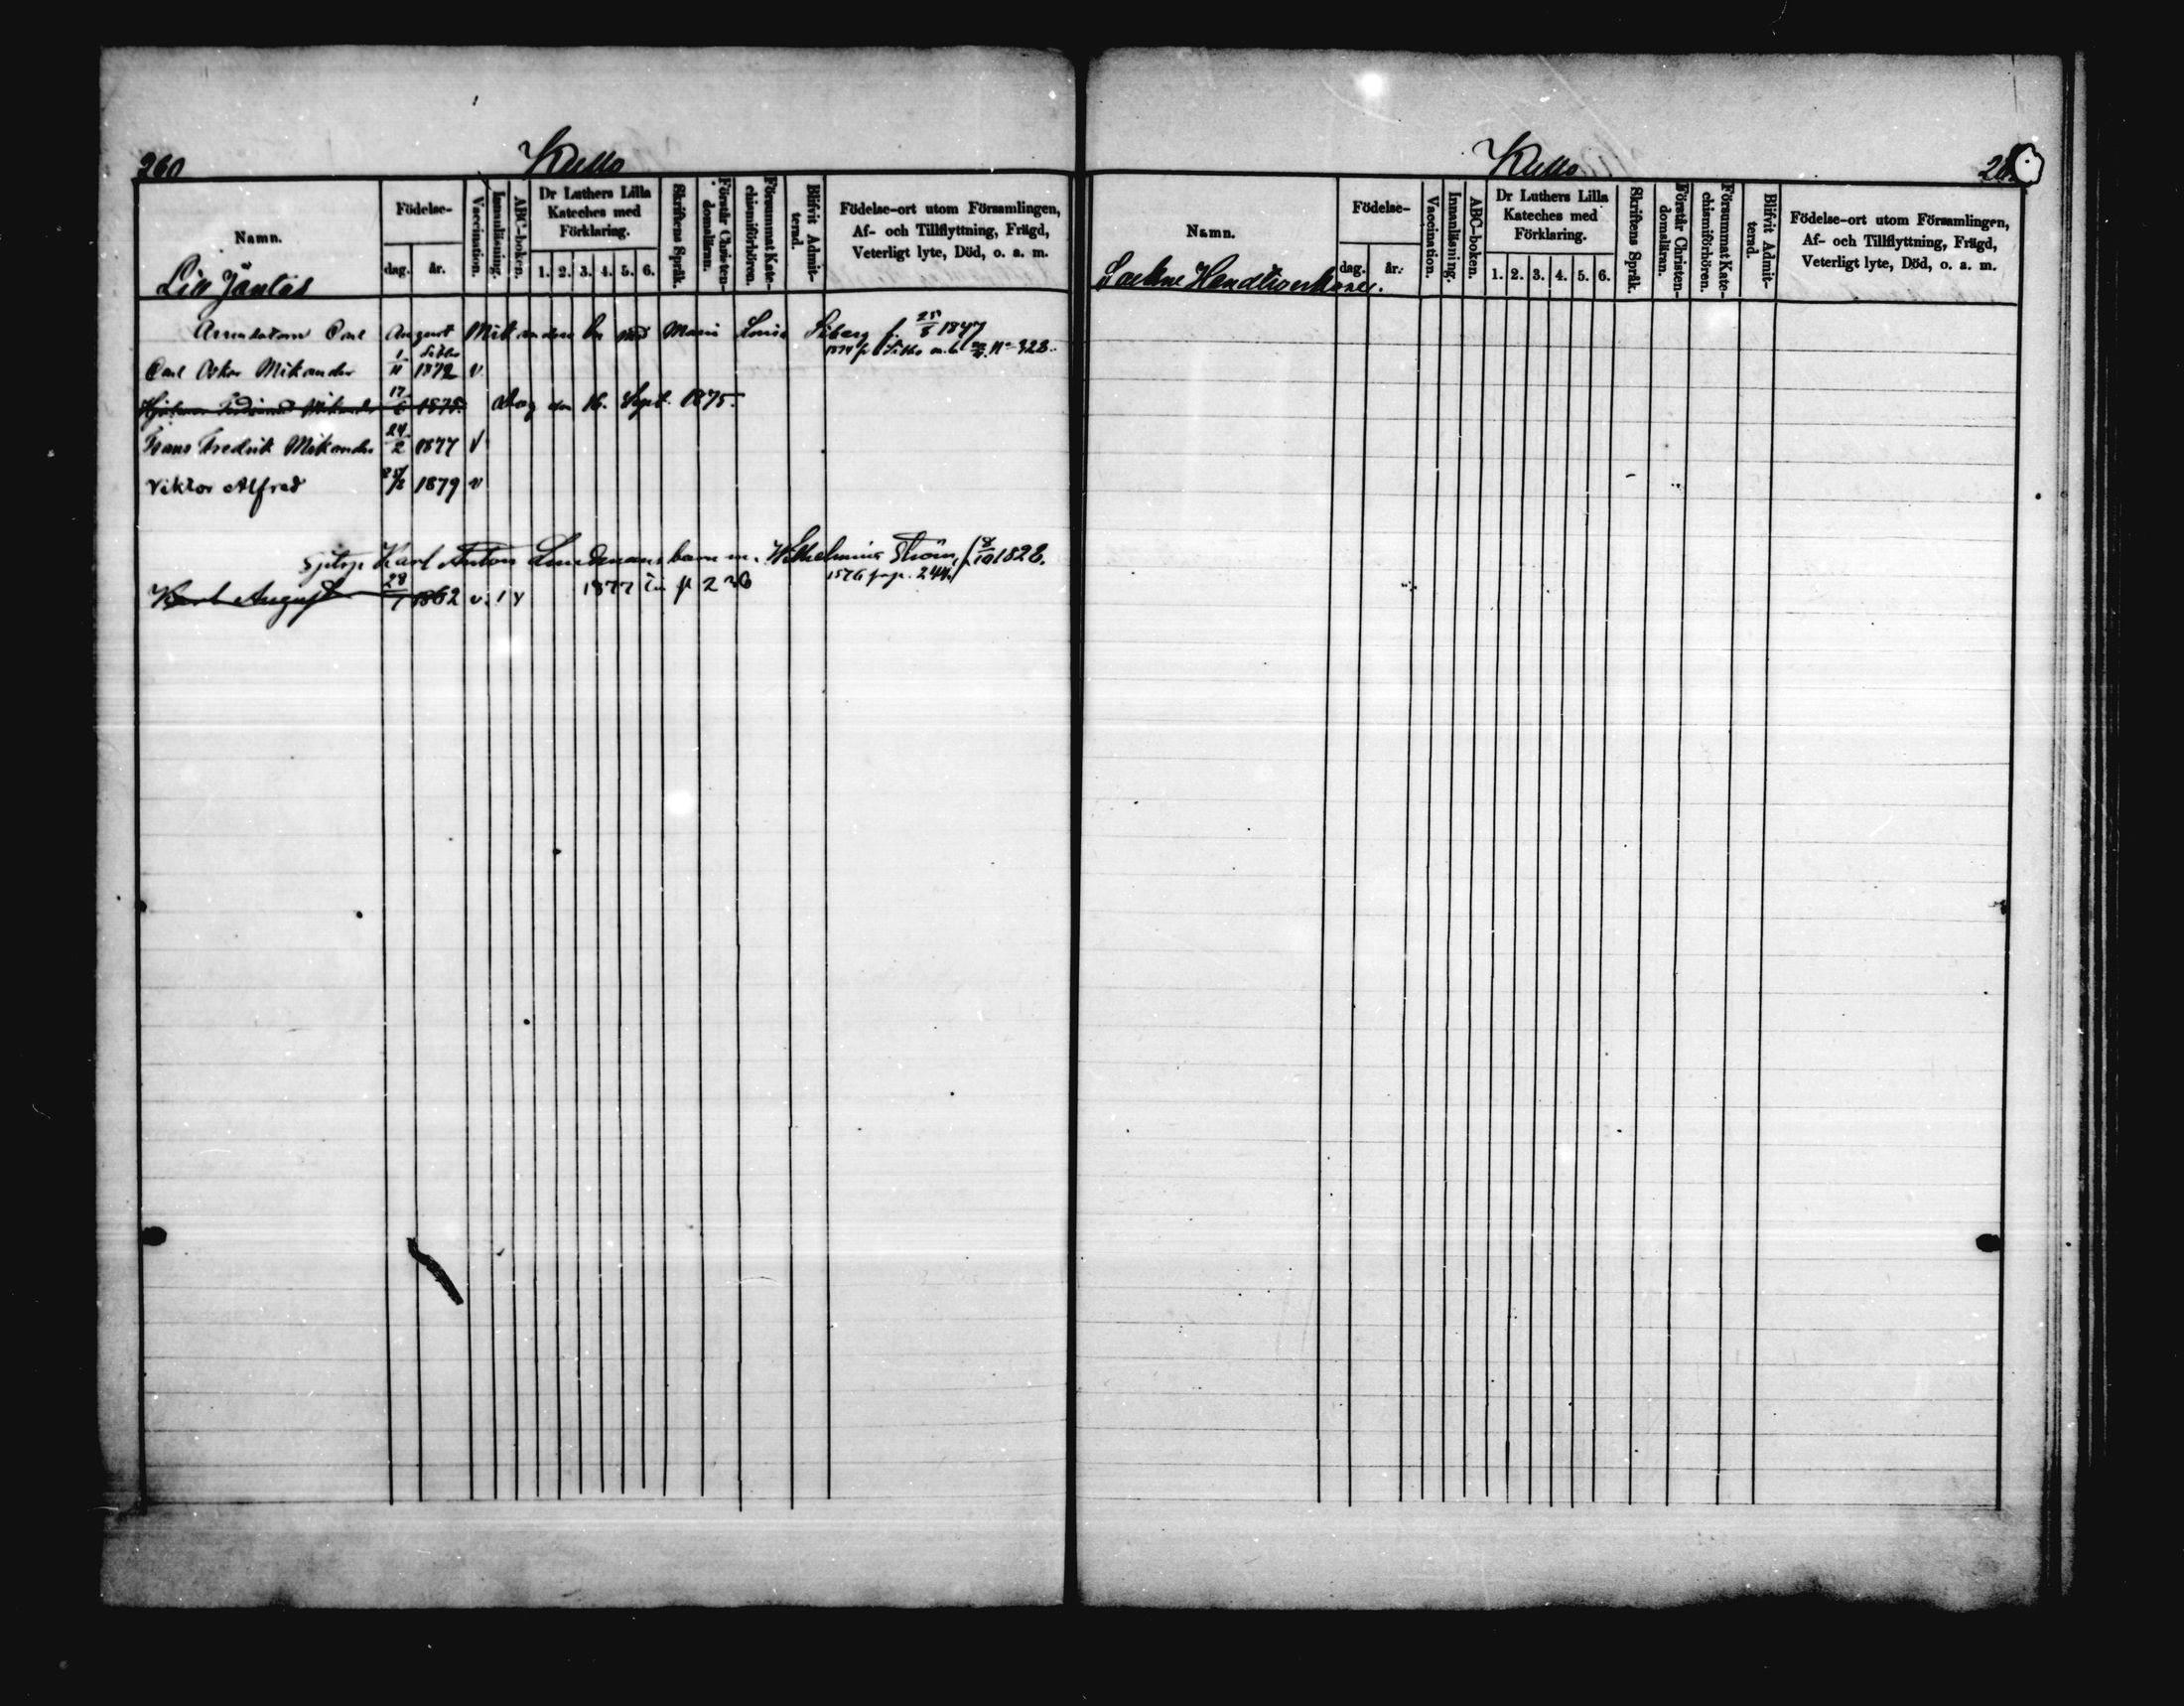 260
Kullo
Namn.
Födelse-
dag. år.
Vaccination.
Innanläsning.
ABC-boken.
Dr Luthers Lilla
Kateches med
Förklaring.
1. 2. 3. 4. 5. 6.
Skriftens Språk.
Förstår Christen-
domsläran.
Försummat Kate-
chismiförhören.
Blifvit Admit-
terad.
Födelse-ort utom Församlingen,
Af- och Tillflyttning, Frägd,
Veterligt lyte, Död, o. a. m.
Lill Jäntas
Arrendatorn Carl August Mikanders bn med Maria Lovisa f. 25/8 1847
Sibbo
Carl Oskar Mikander 1/11 1872 v
1874 fr Sibbo m. b. N° 328.
Hjalmar Ferdinand Mikander 17/6 1875. dog den 16. Sept. 1875.
Frans Fredrik Mikander 24/2 1877 v
Viktor Alfred 1879 v
Sjelvp Karl Anton Lindmans barn m. Wilhelmina Ström, f 8/10 1828.
1876 fr p. 244.
Karl August 28/1 1862 v. 1 v 1877 in p 226
Kullo
Namn.
Födelse-
dag. år.
Vaccination.
Innanläsning.
ABC-boken.
Dr Luthers Lilla
Kateches med
Förklaring.
1. 2. 3. 4. 5. 6.
Skriftens Språk.
Förstår Christen-
domsläran.
Försummat Kate-
chismiförhören.
Blifvit Admit-
terad.
Födelse-ort utom Församlingen,
Af- och Tillflyttning, Frägd,
Veterligt lyte, Död, o. a. m.
Sockne Handtverkare.